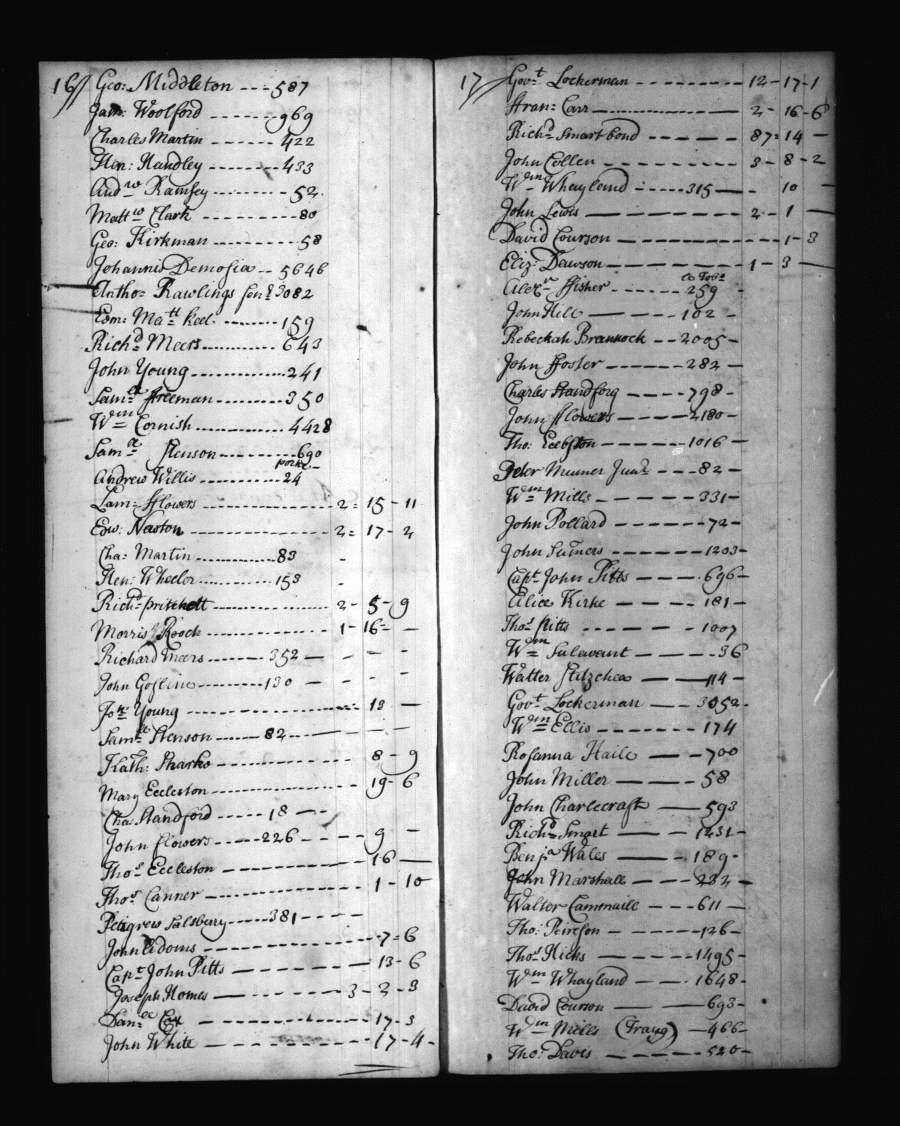 16 Geo: Middleton --- 587
Jam: Woolford ------- 969
Charles Martin ------ 422
Hen: Handley ------- 433
Andrw Ramsey ------ 52
Mattw Clark --------- 80
Geo: Kirkman ------- 58
Johannis Demosia -- 5646
Antho= Rawlings senr 3082
Edm: Matt Keel ------ 159
Richd Meers --------- 643
John Young ---------- 241
Saml ffreeman ------ 350
Wm Cornish --------- 4428
Saml Stenson ------ 690
porke
Andrew Willis ------- 24
Lam: fflowers ------- 2= 15-11
Edw: Newton ------- 2= 17-2
Cha: Martin ------- 83 -
Hen: Wheeler ------- 153 -
Richd pritchett ------- 2- 5-9
Morris Rooch ------- 1-16= -
Richard Meers ------- 352 - - - -
John Gosline ------- 130 - - - -
Jon Young ------- 13 -
Saml Stenson ----- 82 - - - -
Kath: Sharko ------- 8-9
Mary Eccleston ------- 19-6
Cha: Standford ---- 18 - -
John fflowers ---- 226 --- 9 -
Thos Eccleston ------- 16 -
Thos Canner ------- 1-10
Petigrew Salsbury --- 381 - - - -
John Edoms ------- 7=6
Capt John Pitts ------- 13-6
Joseph Homes ------- 3-2-3
Danll Cox ------- 17-3
John White ------- 17-4-
17 Govt Lockerman ------- 12-17-1
ffran: Carr ------- 2-16-6
Richd Smart bond ------- 87=14 -
John Collen ------- 3-8-2
Wm Whayland ----- 315 - - 10 -
John Lewis ------- 2- 1 -
David Courson ------- 1-3
Eliz: Dawson ------- 1-3 -
Alexr ffisher ------ 259 -
John Hill ------- 102 -
Rebeckah Brannock -- 2005 -
John ffoster ------- 282 -
Charles Standforg ---- 798 -
John fflowers ------- 2180 -
Tho: Eccleston ------- 1016 -
Peter Mumer Junr --- 82 -
Wm Mills ------- 331 -
John Pollard ------- 72 -
John Sumers ------- 1203 -
Capt John Pitts ---- 696 -
Alice Kirke ------- 181 -
Thos Pitts ------- 1007
Wm Sulavant ------- 36
Watter Stitzchea ---- 114 -
Govt Lockerman ---- 3052 -
Wm Ellis ------- 174
Rosanna Haile ---- 700
John Miller ------- 58
John Charlecraft ---- 593
Richd Smart ------- 1431 -
Benja Wales ------- 189 -
John Marshall ------- 232 -
Walter Cammaile ---- 611 -
Tho: Peirson ------- 126 -
Thos Hicks ------- 1495 -
Wm Whayland ------- 1648 -
David Courson ------- 693 -
Wm Mills (Traug) - 466 -
Tho: Davis ------- 520 -